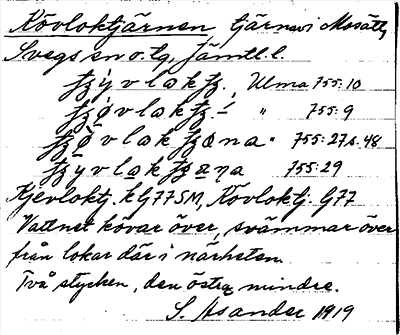 Kövloktjärnen, tjärn i Mosätt,
Svegs sn o. tg, Jämtl. l.
ʃʒy̍vlɑkʃʒ. Ulma 755:10
ʃʒøvlakʃʒ.- " 755:9
ʃʒø̀vlakʃʒæna " 755:27 s. 48
ʃʒy̆vlɑkʃʒæ̱ņa 755:29
Kjevloktj. kG77SM, Kövloktj. G77
Vattnet kövar över, svämmar över
från lokar där i närheten.
Två stycken, den östra mindre.
S. Asander 1919